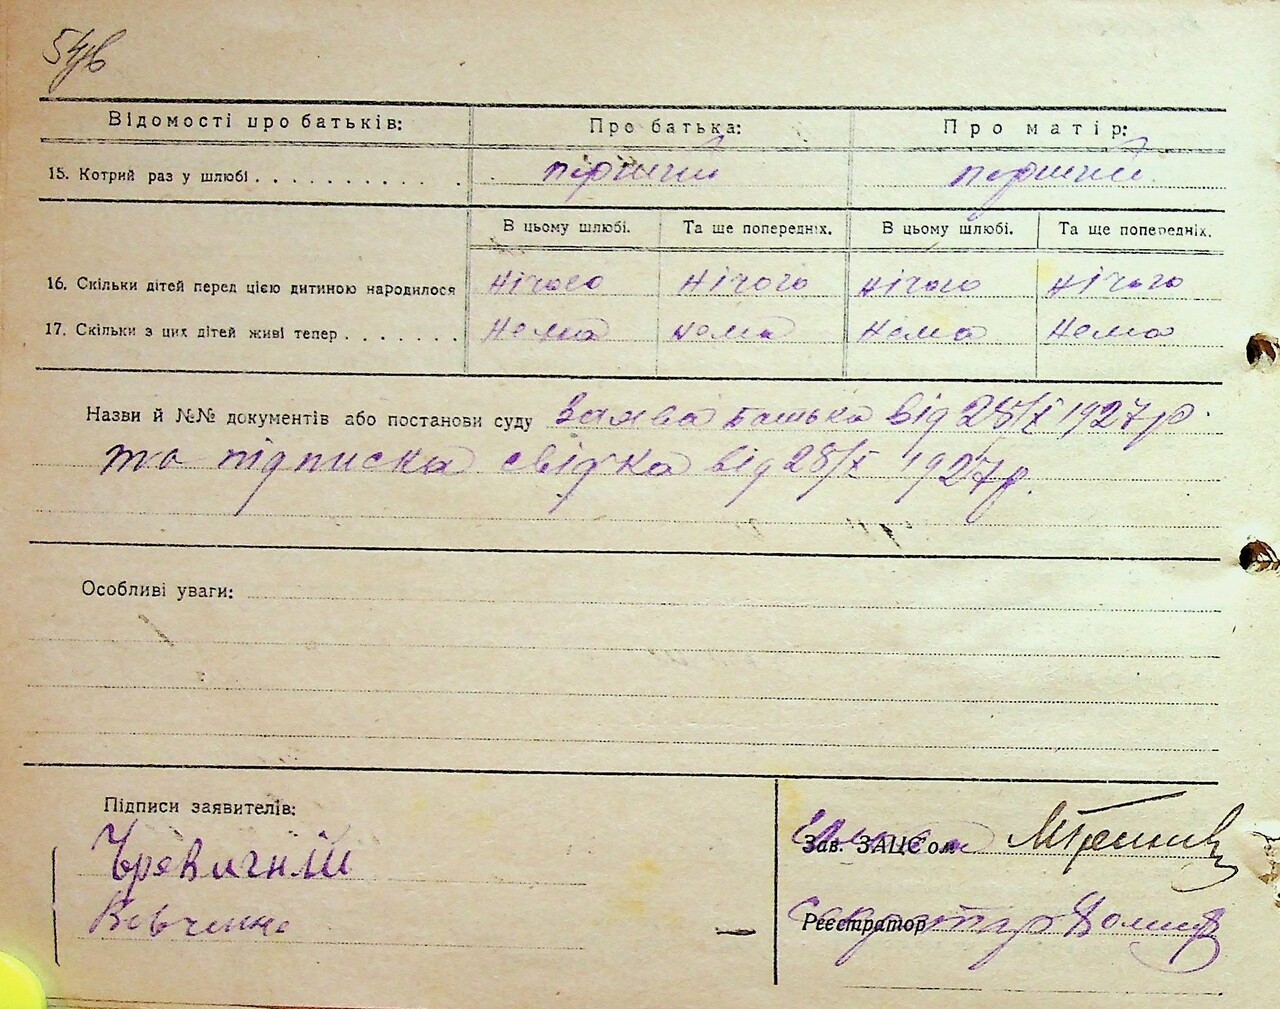 54/в
Відомості про батьків: Про батька: Про матір:
15. Котрий раз у шлюбі . . . . . . . . . . . перший перший
В цьому шлюбі. Та ще попередніх. В цьому шлюбі. Та ще попередніх.
16. Скільки дітей перед цією дитиною народилося нічого нічого нічого нічого
17. Скільки з цих дітей живі тепер . . . . . . . нема нема нема нема
Назви й №№ документів або постанови суду Заява батька від 28/X 1927 р.
та підписка свідка від 28/X 1927 р.
Особливі уваги:
Підписи заявителів:
Зав. ЗАЦСом
Черевичній
Вовченко
Реєстратор Секретар